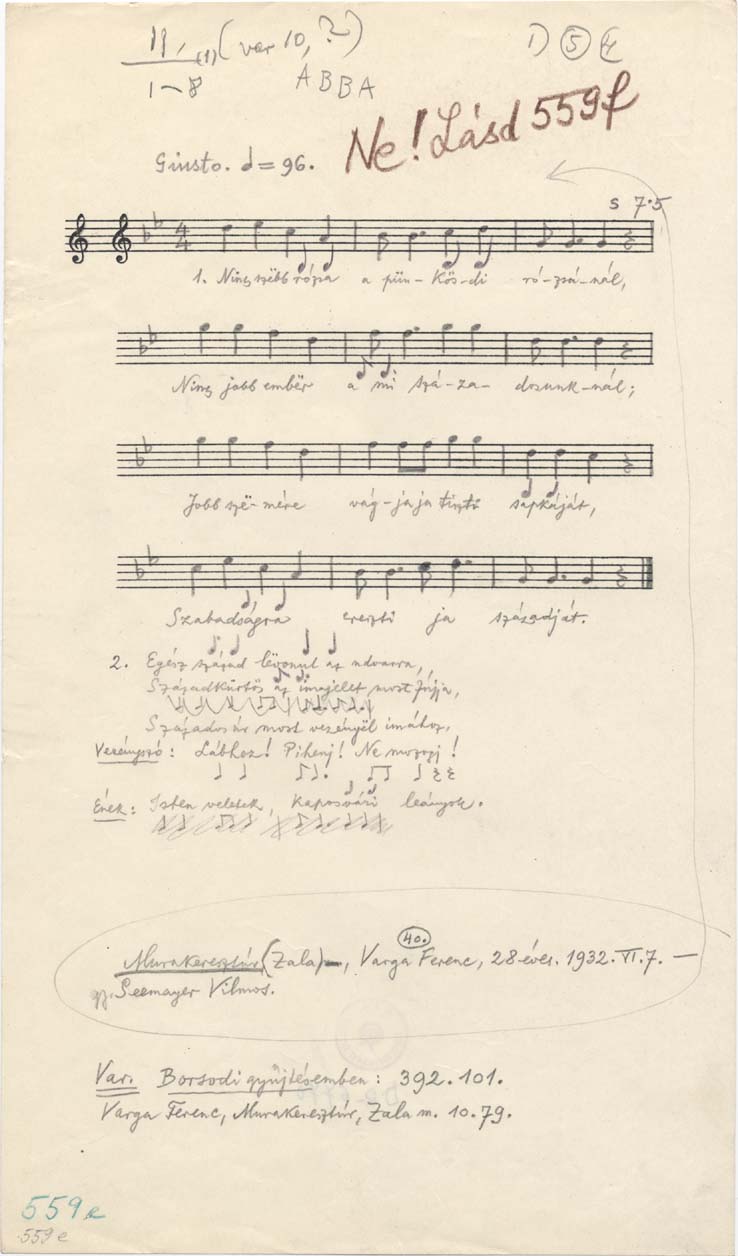 11, (1) (var 10, ?)
1-8 ABBA
1) 5
Ne! Lásd 559f
Giusto. = 96.
s 7·5
4
4
1. Nincs szëbb rózsa a pün-kös-di ró-zsá-nál,
Nincs jobb embër a mi szá-za-dosunk-nál;
Jobb szë-mére vág-ja ja tiszti sapkáját,
Szabadságra ereszti ja századját.
2. Egész század lëvonul az udvarra,
Századkürtös az imajelet most fújja,
Századosúr most vezényël imához,
Vezényszó: Lábhoz! Pihenj! Ne mozogj!
Ének: Isten veletek, kaposvári leányok.
40.
Murakeresztúr (Zala), Varga Ferenc, 28 éves. 1932. VI. 7. —
gy. Seemayer Vilmos.
Var. Borsodi gyűjtésemben: 392. 101.
Varga Ferenc, Murakeresztúr, Zala m. 10.79.
559e
559e